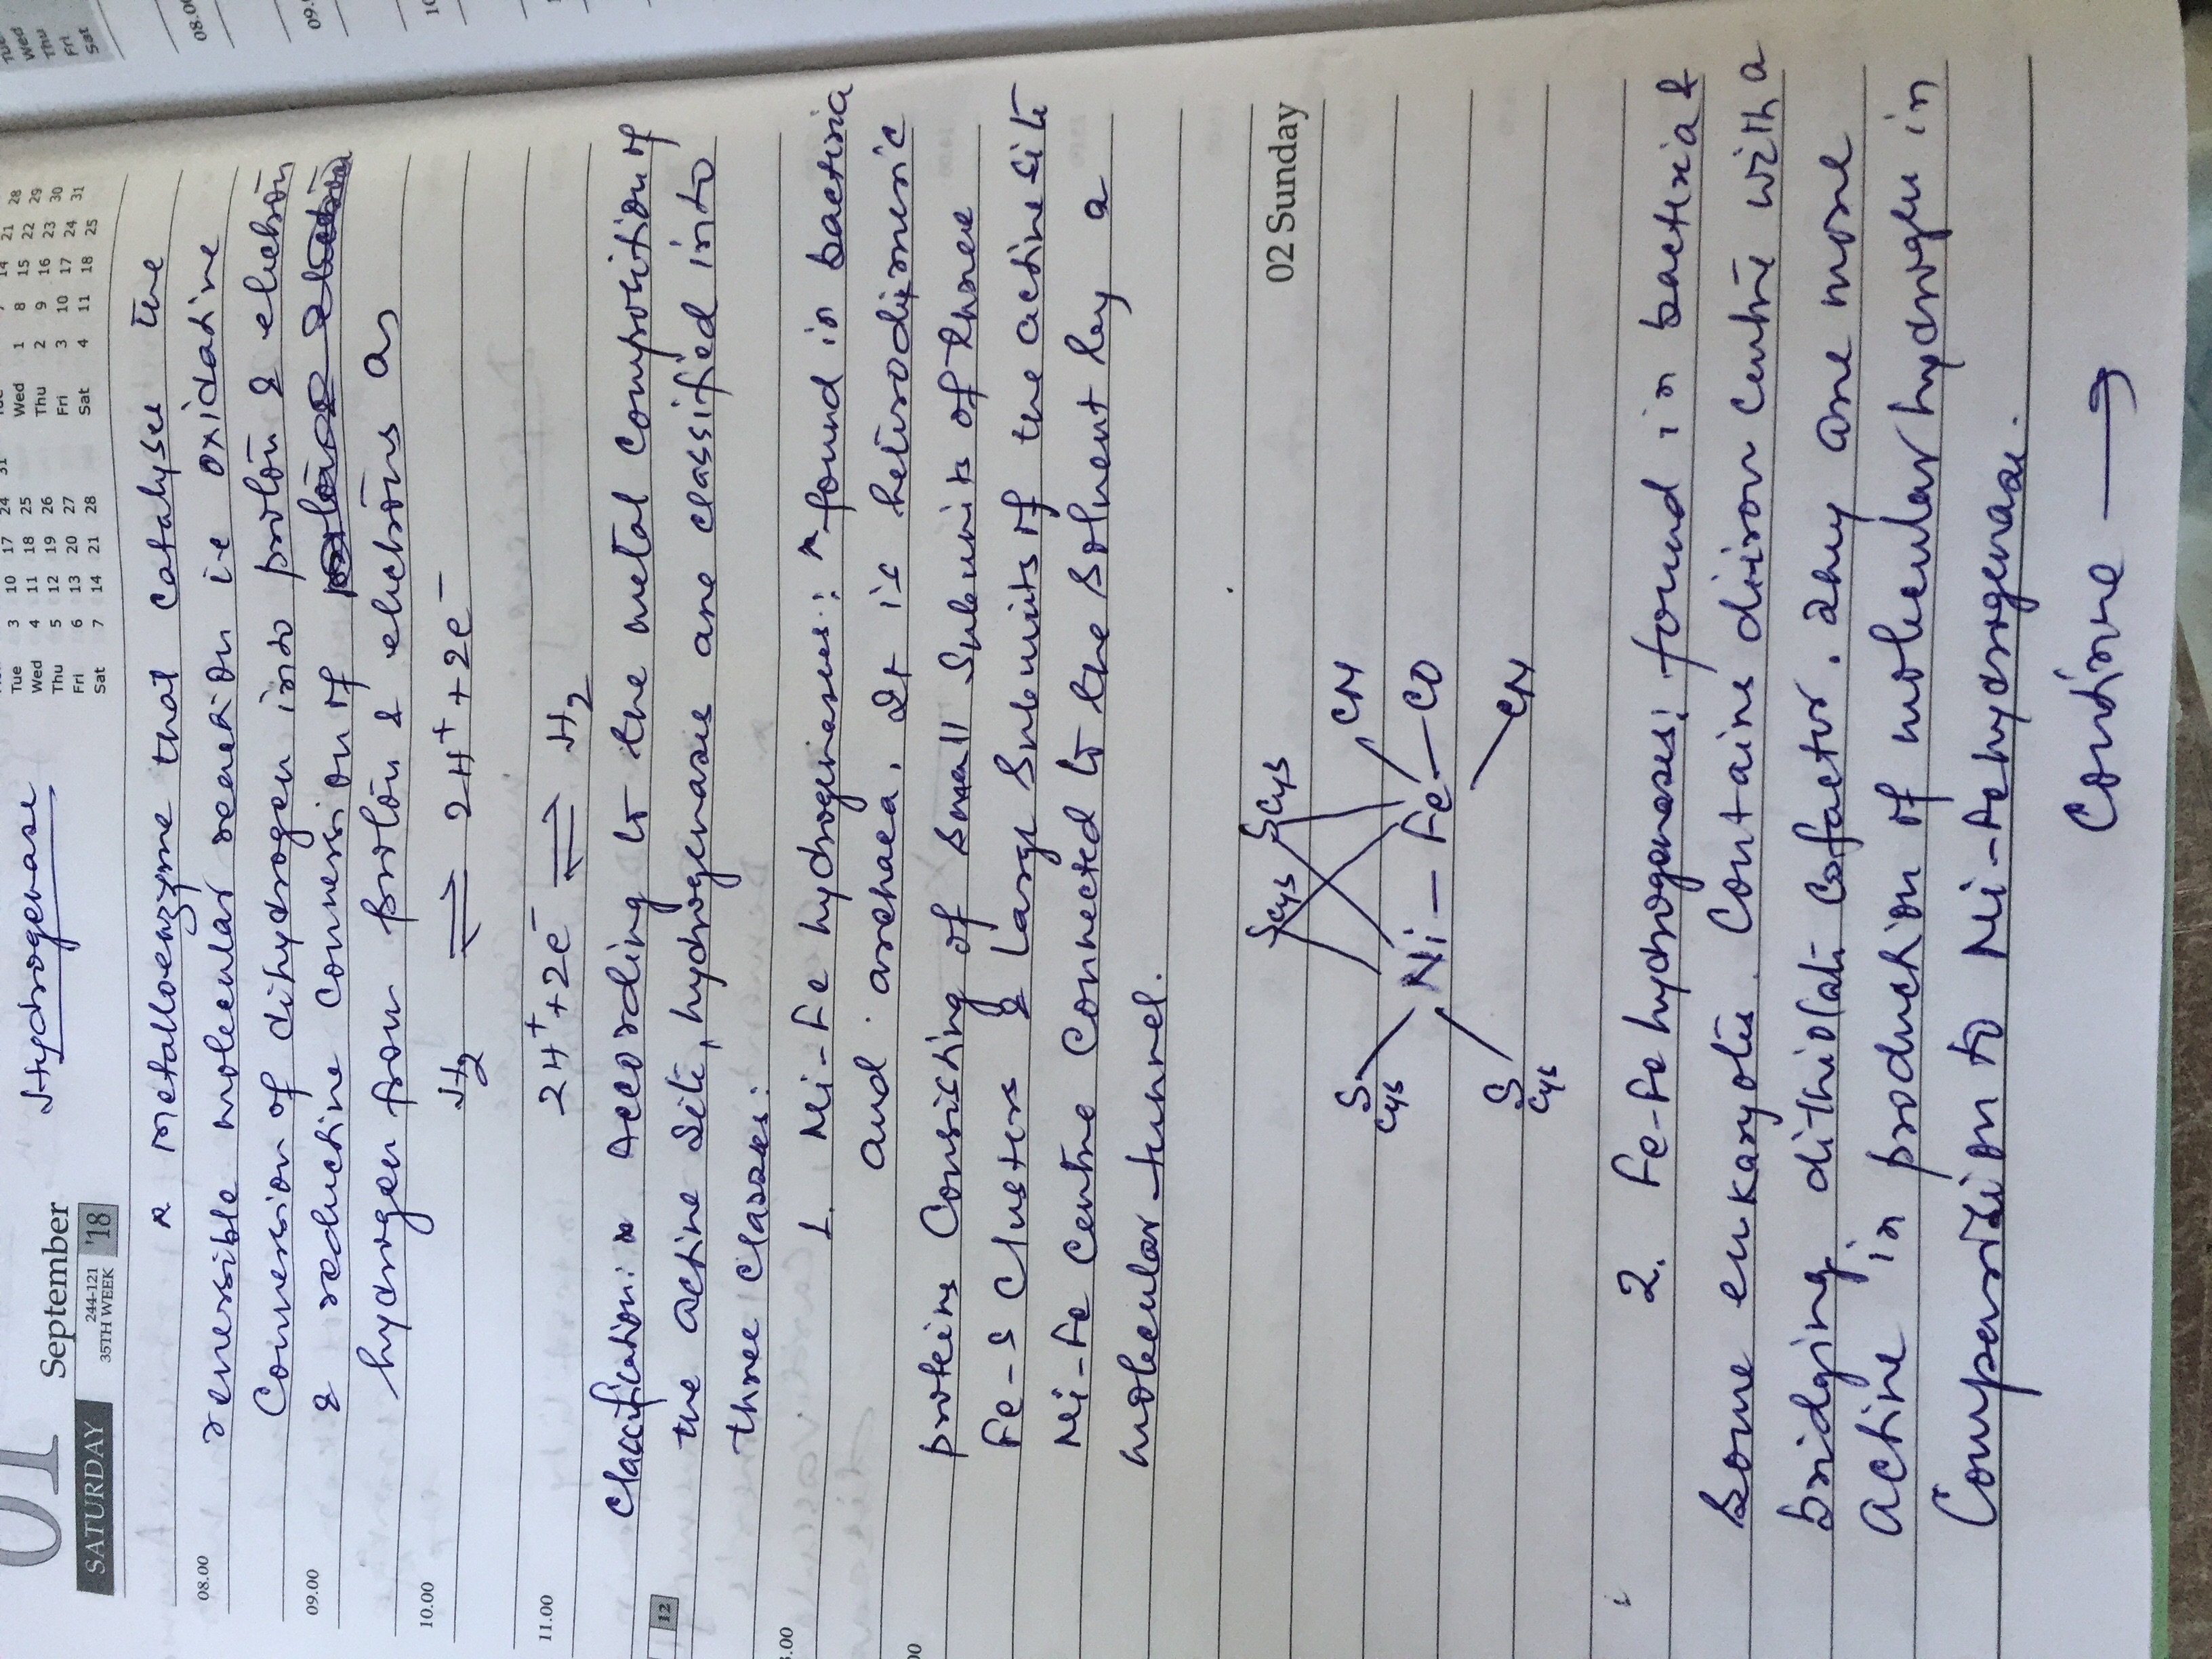 01 September
SATURDAY 244-121 35TH WEEK '18
Tue 3 10 17 24
Wed 4 11 18 25
Thu 5 12 19 26
Fri 6 13 20 27
Sat 7 14 21 28
Wed 1 8 15 22 29
Thu 2 9 16 23 30
Fri 3 10 17 24 31
Sat 4 11 18 25
Hydrogenase
A metalloenzyme that catalyse the
08.00
reversible molecular reaction i.e oxidative
Conversion of dihydrogen into proton & electron
09.00
& reductive Conversion of
hydrogen from proton & electrons as
10.00
H2 ⇌ 2H+ + 2e-
11.00
2H+ + 2e- ⇌ H2
Classification:- According to the metal Composition of
12
the active site, hydrogenase are classified into
three classes:
1. Ni-Fe hydrogenases: found in bacteria
and archaea. It is heterodimeric
proteins Consisting of small subunits of three
Fe-S Clusters & Large Subunits of the active site
Ni-Fe Centre Connected to the Solvent by a
molecular-tunnel.
02 Sunday
Scys Scys
S Cys CN
Ni — Fe — CO
S Cys CN
2. Fe-Fe hydrogenases: found in bacteria &
Some eukaryotes. Contains diiron Centre with a
bridging dithiolate Cofactor. They are more
active in production of molecular hydrogen in
Comparison to Ni-Fe hydrogenase.
Continue →